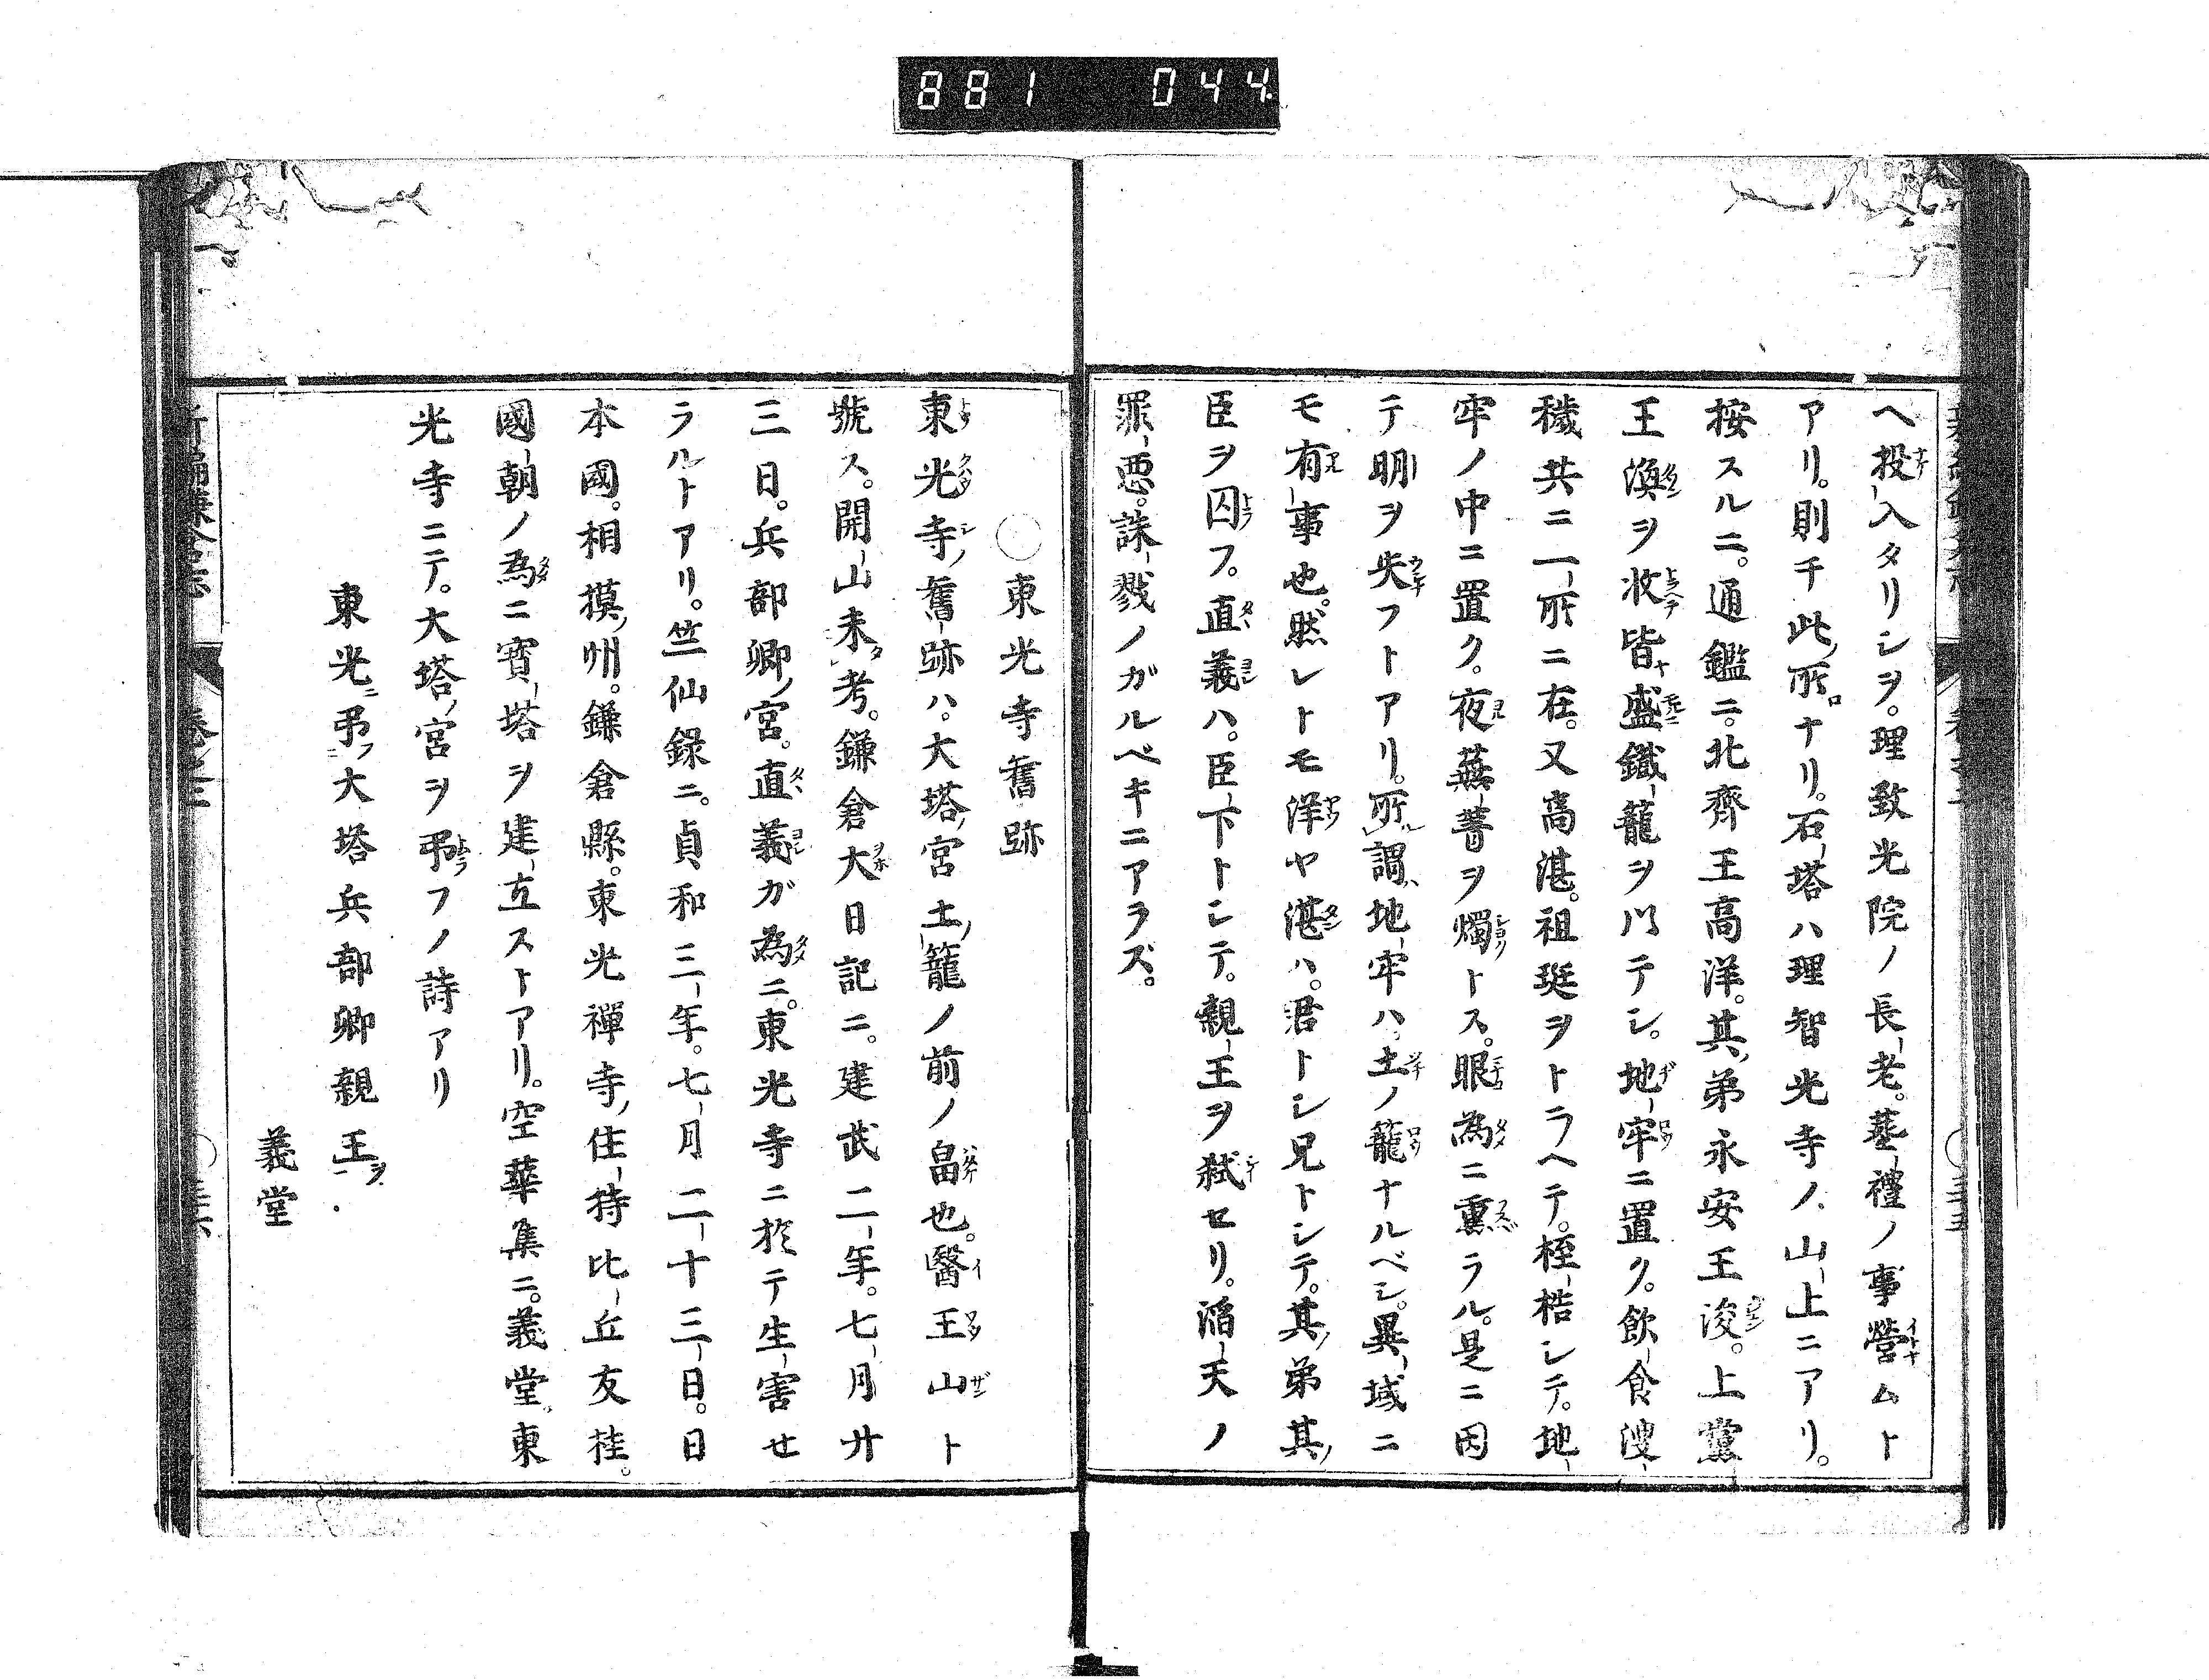 881 044
ヘ投入タリシヲ。理致光院ノ長老。葬禮ノ事營ムト
アリ。則チ此所ナリ。石塔ハ理智光寺ノ山上ニアリ。
按スルニ。通鑑ニ。北齊王高洋。其弟永安王浚。上黨
王渙ヲ收皆盛鐵籠ヲ以テシ。地牢ニ置ク。飲食溲
穢共ニ一所ニ在。又高湛。祖珽ヲトラヘテ。桎梏シテ。地
牢ノ中ニ置ク。夜蕪菁ヲ燭トス。眼為ニ熏ラル。是ニ因
テ明ヲ失フトアリ。所謂地牢ハ土ノ籠ナルベシ。異域ニ
モ有事也。然レトモ洋ヤ湛ハ。君トシ兄トシテ。其弟其
臣ヲ囚フ。直義ハ。臣下トシテ。親王ヲ弑セリ。滔天ノ
罪惡。誅戮ノガルベキニアラズ。
○東光寺舊跡
東光寺舊跡ハ。大塔宮土籠ノ前ノ畠也。醫王山ト
號ス。開山未考。鎌倉大日記ニ。建武二年。七月廿
三日。兵部卿宮。直義ガ為ニ。東光寺ニ於テ生害セ
ラルトアリ。竺仙錄ニ。貞和三年。七月二十三日。日
本國。相摸州。鎌倉縣。東光禪寺住持比丘友桂。
國朝ノ為ニ寶塔ヲ建立ストアリ。空華集ニ。義堂東
光寺ニテ。大塔宮ヲ弔フノ詩アリ
東光ニ弔フ大塔兵部卿親王ヲ
義堂